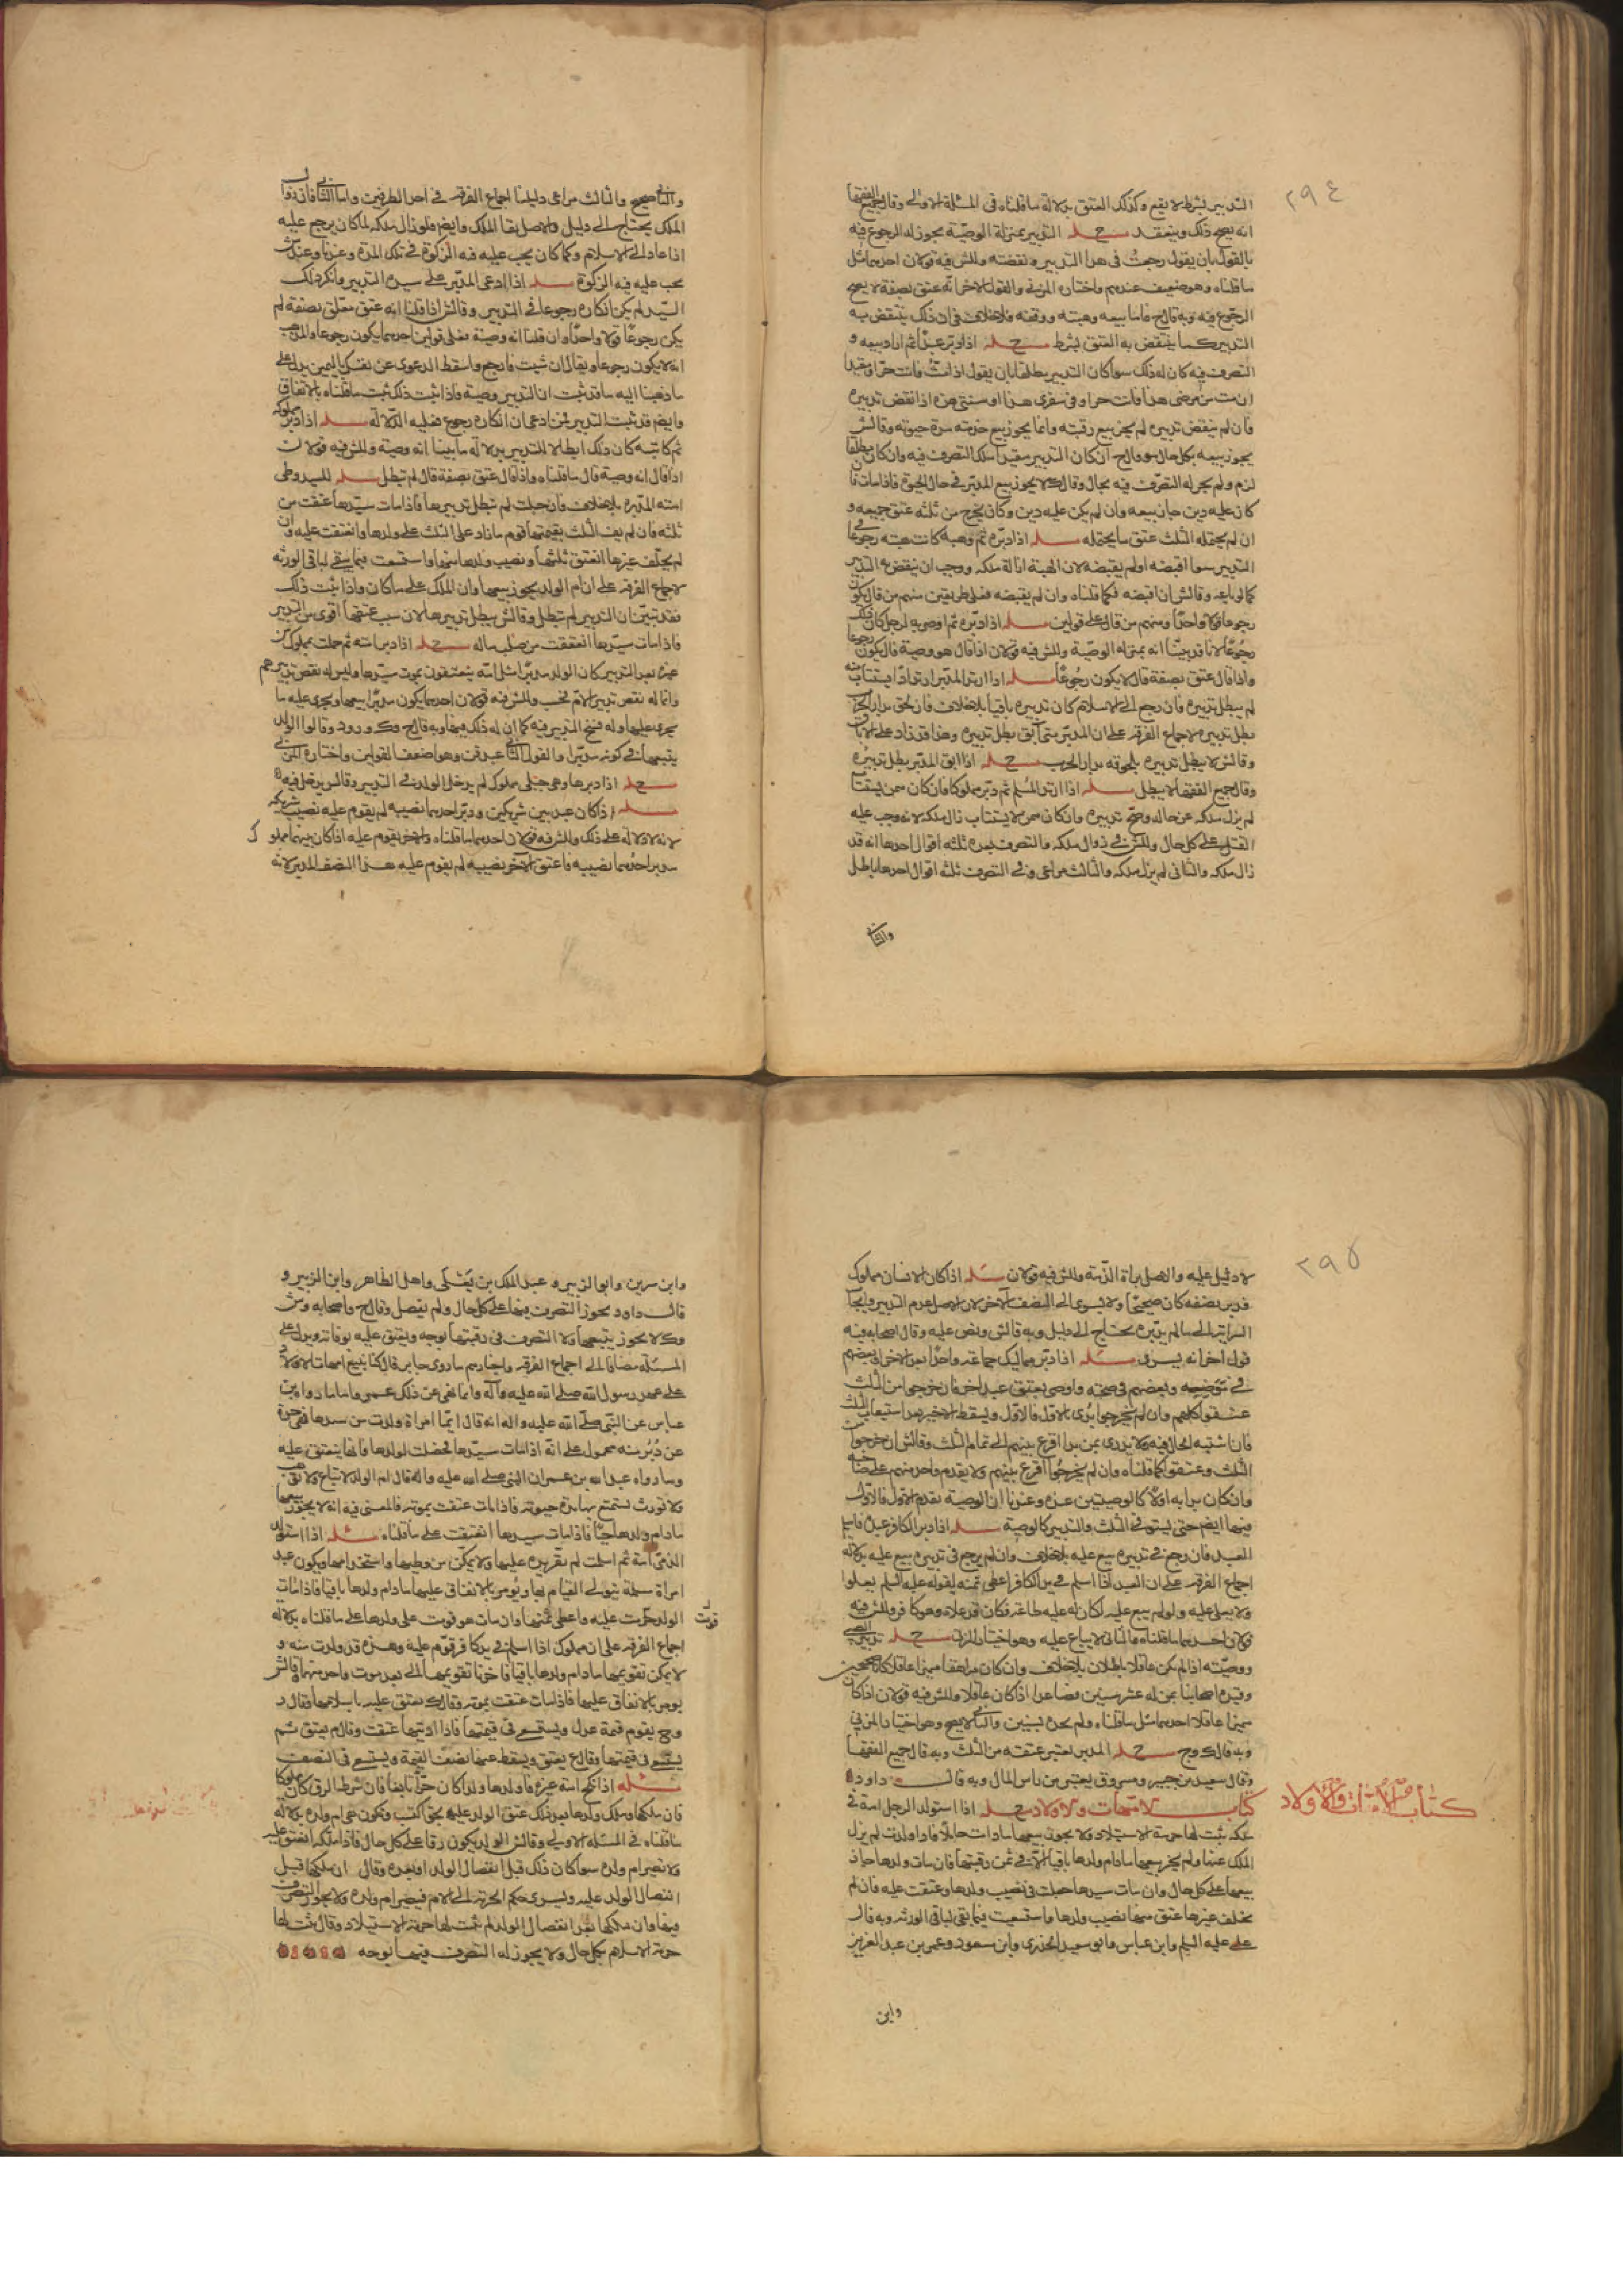 ٢٩٤
التدبير بشرط لا يقع وكذلك العتق بدلالة ما قلناه في المسئلة الاولى وقال جميع الفقها
انه يصح ذلك وينعقد مسئله التدبير بمنزلة الوصية يجوز له الرجوع فيه
بالقول بان يقول رجعت في هذا التدبير ونقضته وللش فيه قولان احدهما مثل
ما قلناه وهو ضعيف عندهم واختاره المزني والقول الاخر انه عتق بصفة لا يصح
الرجوع فيه وبه قال ح فاما بيعه وهبته ووقفه فلا خلاف في ان ذلك ينتقض به
التدبير كما ينتقض به العتق بشرط مسئله اذا دبر عبدا ثم اراد بيعه و
التصرف فيه كان له ذلك سوا كان التدبير مطلقا بان يقول اذا مت فانت حر او مقيدا
ان مت من مرضي هذا فانت حر او في سفري هذا او سنتي هذه اذا نقض تدبيره
فان لم ينقض تدبيره لم يجز بيع رقبته وانما يجوز بيع خدمته مدة حيوته وقال ش
يجوز بيعه بكل حال وقال ح ان كان التدبير مقيدا ملك التصرف فيه وان كان مطلقا
لزم ولم يجز له التصرف فيه بحال وقال ك لا يجوز بيع المدبر في حال الحيوة فاذا مات فا
كان عليه دين جاز بيعه وان لم يكن عليه دين وكان يخرج من ثلثه عتق جميعه و
ان لم يحتمله الثلث عتق ما يحتمله مسئله اذا دبره ثم وهبه كانت هبته رجوعا في
التدبير سوا اقبضه او لم يقبضه لان الهبة ازالة ملكه ووجب ان ينتقض به التدبير
كما لو باعه وقال ش ان اقبضه فكما قلناه وان لم يقبضه فعلى طريقتين منهم من قال يكون
رجوعا قولا واحدا ومنهم من قال على قولين مسئله اذا دبره ثم اوصى به لرجل كان ذلك
رجوعا لانا قد بينا انه بمنزلة الوصية وللش فيه قولان اذا قال هو وصية قال يكون رجوعا
واذا قال عتق بصفة قال لا يكون رجوعا مسئله اذا ارتد المدبر ارتدادا يستتاب منه
لم يبطل تدبيره فان رجع الى الاسلام كان تدبيره باقيا بلا خلاف فان لحق بدار الحرب
بطل تدبيره لاجماع الفرقه على ان المدبر متى ابق بطل تدبيره وهذا قد زاد على الاباق
وقال ش لا يبطل تدبيره بلحوقه بدار الحرب مسئله اذا ابق المدبر بطل تدبيره
وقال جميع الفقها لا يبطل مسئله اذا ارتد المسلم ثم دبر مملوكا فان كان ممن يستتاب
لم يزل ملكه عن ماله وصح تدبيره وان كان ممن لا يستتاب زال ملكه لانه وجب عليه
القتل على كل حال وللش في زوال ملكه والتصرف بعده ثلثه اقوال احدها انه قد
زال ملكه والثاني لم يزل ملكه والثالث مراعى وفي التصرف ثلثه اقوال احدها باطل
والثاني
والثاني صحيح والثالث مراعى دليلنا اجماع الفرقه في احد الطرفين واما الثاني فان زوال
الملك يحتاج الى دليل والاصل بقا الملك وايضا فلو زال ملكه لما كان يرجع عليه
اذا عاد الى الاسلام وكما كان يجب عليه فيه الزكوة في تلك المدة وعندنا وعند ش
يجب عليه فيه الزكوة مسئله اذا ادعى المدبر على سيده التدبير وانكر ذلك
السيد لم يكن انكاره رجوعا في التدبير وقال ش اذا قلنا انه عتق معلق بصفة لم
يكن رجوعا قولا واحدا وان قلنا انه وصية فعلى قولين احدهما يكون رجوعا والمذهب
انه لا يكون رجوعا ويقال ان شيت فارجع واسقط الدعوى عن نفسك باليمين يدل على
ما ذهبنا اليه ما قد ثبت ان التدبير وصية فاذا ثبت ذلك ثبت ما قلناه بالاتفاق
وايضا قد ثبت التدبير فمن ادعى ان انكاره رجوع فعليه الدلاله مسئله اذا دبر مملوكه
ثم كاتبه كان ذلك ابطالا للتدبير بدلالة ما بينا انه وصية وللش فيه قولان
اذا قال انه وصية قال ما قلناه واذا قال عتق بصفة قال لم تبطل مسئله للسيد وطى
امته المدبره بلا خلاف فان حبلت لم تبطل تدبيرها فاذا مات سيدها عتقت من
ثلثه فان لم يف الثلث بقيمتها قوم ما زاد على الثلث على ولدها وانعتقت عليه وان
لم يخلف غيرها انعتق ثلثها ونصيب ولدها منها واستسعت فيما يبقى لباقي الورثه
لاجماع الفرقه على ان ام الولد يجوز بيعها وان الملك على ما كان واذا ثبت ذلك
فقد تبين ان التدبير لم تبطل وقال ش يبطل تدبيرها لان سبب عتقها اقوى من التدبير
فاذا مات سيدها انعتقت من صلب ماله مسئله اذا دبر امته ثم حملت بمملوك من
غيره بعد التدبير كان الولد مدبرا مثل امه ينعتقون بموت سيدها وليس له نقض تدبيرهم
وانما له نقض تدبير الام فحسب وللش فيه قولان احدهما يكون مدبرا معها ويجري عليه ما
يجري عليها وله فسخ التدبير فيه كما ان له ذلك فيها وبه قال ح و ك و ر ود وقالوا الولد
يتبعها في كونه مدبرا والقول الثاني عبد قن وهو اضعف القولين واختاره المزني
مسئله اذا دبرها وهي حبلى بمملوك لم يدخل الولد في التدبير وقال ش يدخل فيه
مسئله اذا كان عبد بين شريكين ودبر احدهما نصيبه لم يقوم عليه نصيب شريكه
لانه لا دلالة على ذلك وللش فيه قولان احدهما ما قلناه والاخر يقوم عليه اذا كان بينهما مملوك
مدبر احدهما نصيبه فاعتق الاخر نصيبه لم يقوم عليه هذا النصف المدبر لانه
٢٩٥
لا دليل عليه والاصل براة الذمة وللش فيه قولان مسئله اذا كان لانسان مملوك
فدبر نصفه كان صحيحا ولا يسري الى النصف الاخر لان الاصل عدم التدبير وايجاب
السراية الى ما لم يدبره يحتاج الى دليل وبه قال ش ونص عليه وقال اصحابه فيه
قول اخر انه يسري مسئله اذا دبر مماليك جماعة واحدا بعد الاخر او بعضهم
في مرضه وبعضهم في صحته واوصى بعتق عبد اخر فان خرجوا من الثلث
عتقوا كلهم وان لم يخرجوا بدى بالاول فالاول ويسقط الاخير بعد استيعاب الثلث
فان اشتبه الحال فيه ولا يدرى بمن بدا اقرع بينهم الى تمام الثلث وقال ش ان خرجوا من
الثلث وعتقوا كما قلناه وان لم يخرجوا اقرع بينهم ولا يقدم واحد منهم على صاحبه
وان كان بدا به اولا كالوصيتين عنده وعندنا ان الوصية يقدم الاول فالاول
فيها ايضا حتى يستوفى الثلث والتدبير كالوصية مسئله اذا دبر الكافر عبده فاسلم
العبد فان رجع في تدبيره بيع عليه بلا خلاف وان لم يرجع في تدبيره بيع عليه بدلالة
اجماع الفرقه على ان العبد اذا اسلم في يد الكافر اعطى ثمنه لقوله عليه السلم يعلوا
ولا يعلى عليه ولو لم يبع عليه لكان له عليه طاعة فكان قد علاه وهو كافر وللش فيه
قولان احدهما ما قلناه والثاني لا يباع عليه وهو اختيار المزني مسئله تدبير الصبي
ووصيته اذا لم يكن عاقلا باطلان بلا خلاف وان كان مراهقا مميزا عاقلا كانا صحيحين
وقيده اصحابنا بمن له عشر سنين فصاعدا اذا كان عاقلا وللش فيه قولان اذا كان
مميزا عاقلا احدهما مثل ما قلناه ولم يحده بسنين والثاني لا يصح وهو اختيار المزني
وبه قال ك وح مسئله المدبر يعتبر عتقه من الثلث وبه قال جميع الفقها
وقال سعيد بن جبير ومسروق يعتبر من راس المال وبه قال داود
كتاب امهات الاولاد
كتاب امهات الاولاد مسئله اذا استولد الرجل امة في
ملكه ثبت لها حرمة الاستيلاد ولا يجوز بيعها ما دامت حاملا فاذا ولدت لم يزل
الملك عنها ولم يجز بيعها ما دام ولدها باقيا الا في ثمن رقبتها فان مات ولدها جاز
بيعها على كل حال وان مات سيدها جعلت في نصيب ولدها وعتقت عليه فان لم
يخلف غيرها عتق منها نصيب ولدها واستسعت فيما بقي لباقي الورثه وبه قال
علي عليه السلم وابن عباس وابو سعيد الخدري وابن مسعود وعمر بن عبد العزيز
وابن
وابن سيرين وابو الزبير و عبد الملك بن يعلى واهل الظاهر وابن الزبير و
قال داود يجوز التصرف فيها على كل حال ولم يفصل وقال ح واصحابه وش
وك لا يجوز بيعها ولا التصرف في رقبتها بوجه ويعتق عليه بوفاته ويدل على
المسئلة مضافا الى اجماع الفرقه واخبارهم ما روى جابر قال كنا نبيع امهات الاولاد
على عهد رسول الله صلى الله عليه وآله وانما نهى عن ذلك عمر واما ما رواه بن
عباس عن النبي صلى الله عليه واله انه قال ايما امراة ولدت من سيدها فهي حرة
عن دبر منه محمول على انه اذا مات سيدها فحصلت لولدها فانها ينعتق عليه
وما رواه عبد الله بن عمر ان النبي صلى الله عليه واله قال ام الولد لا تباع ولا توهب
ولا تورث يستمتع بها مدة حيوته فاذا مات عتقت بموته فالمعنى فيه انه لا يجوز بيعها
ما دام ولدها حيا فاذا مات سيدها انعتقت على ما قلناه مسئله اذا استولد
الذمي امة ثم اسلمت لم تقر يده عليها ولا يمكن من وطيها واستخدامها ويكون عند
امراة مسلمة يتولى القيام بها ويومر بالانفاق عليها ما دام ولدها باقيا فاذا مات
الولد قومت عليه واعطى ثمنها وان مات هو قومت على ولدها على ما قلناه بدلالة
قومت
اجماع الفرقه على ان مملوك اذا اسلم في يد كافر قوم عليه وهذه قد ولدت منه و
لا يمكن تقويمها ما دام ولدها باقيا فاخرنا تقويمها الى بعد موت واحد منهما وقال ش
يومر بالانفاق عليها فاذا مات عتقت بموته وقال ك يعتق عليه باسلامها وقال د
وح يقوم قيمة عدل ويستسعى في قيمتها فاذا ادتها عتقت وقال م يعتق ثم
يستسعى في قيمتها وقال ع يعتق ويسقط عنها نصف القيمة ويستسعى في النصف
مسئله اذا نكح امة غيره فاولدها ولدا كان حرا تابعا فان شرط الرق كان مملوكا
فان ملكها وملك ولدها بعد ذلك عتق الولد عليه بحق النسب وتكون هي ام ولده بدلالة
ما قلناه في المسئله الاولى وقال ش الولد يكون رقا على كل حال فاذا ملكه انعتق عليه
ولا تصير ام ولده سوا كان ذلك قبل انفصال الولد او بعده وقال ان ملكها قبل
انفصال الولد عليه ويسري حكم الحرية الى الام فيصير ام ولده ولا يجوز التصرف
فيها وان ملكها بعد انفصال الولد لم يثبت لها حرمة الاستيلاد وقال يثبت لها
حرمة الاسلام بكل حال ولا يجوز له التصرف فيها بوجه